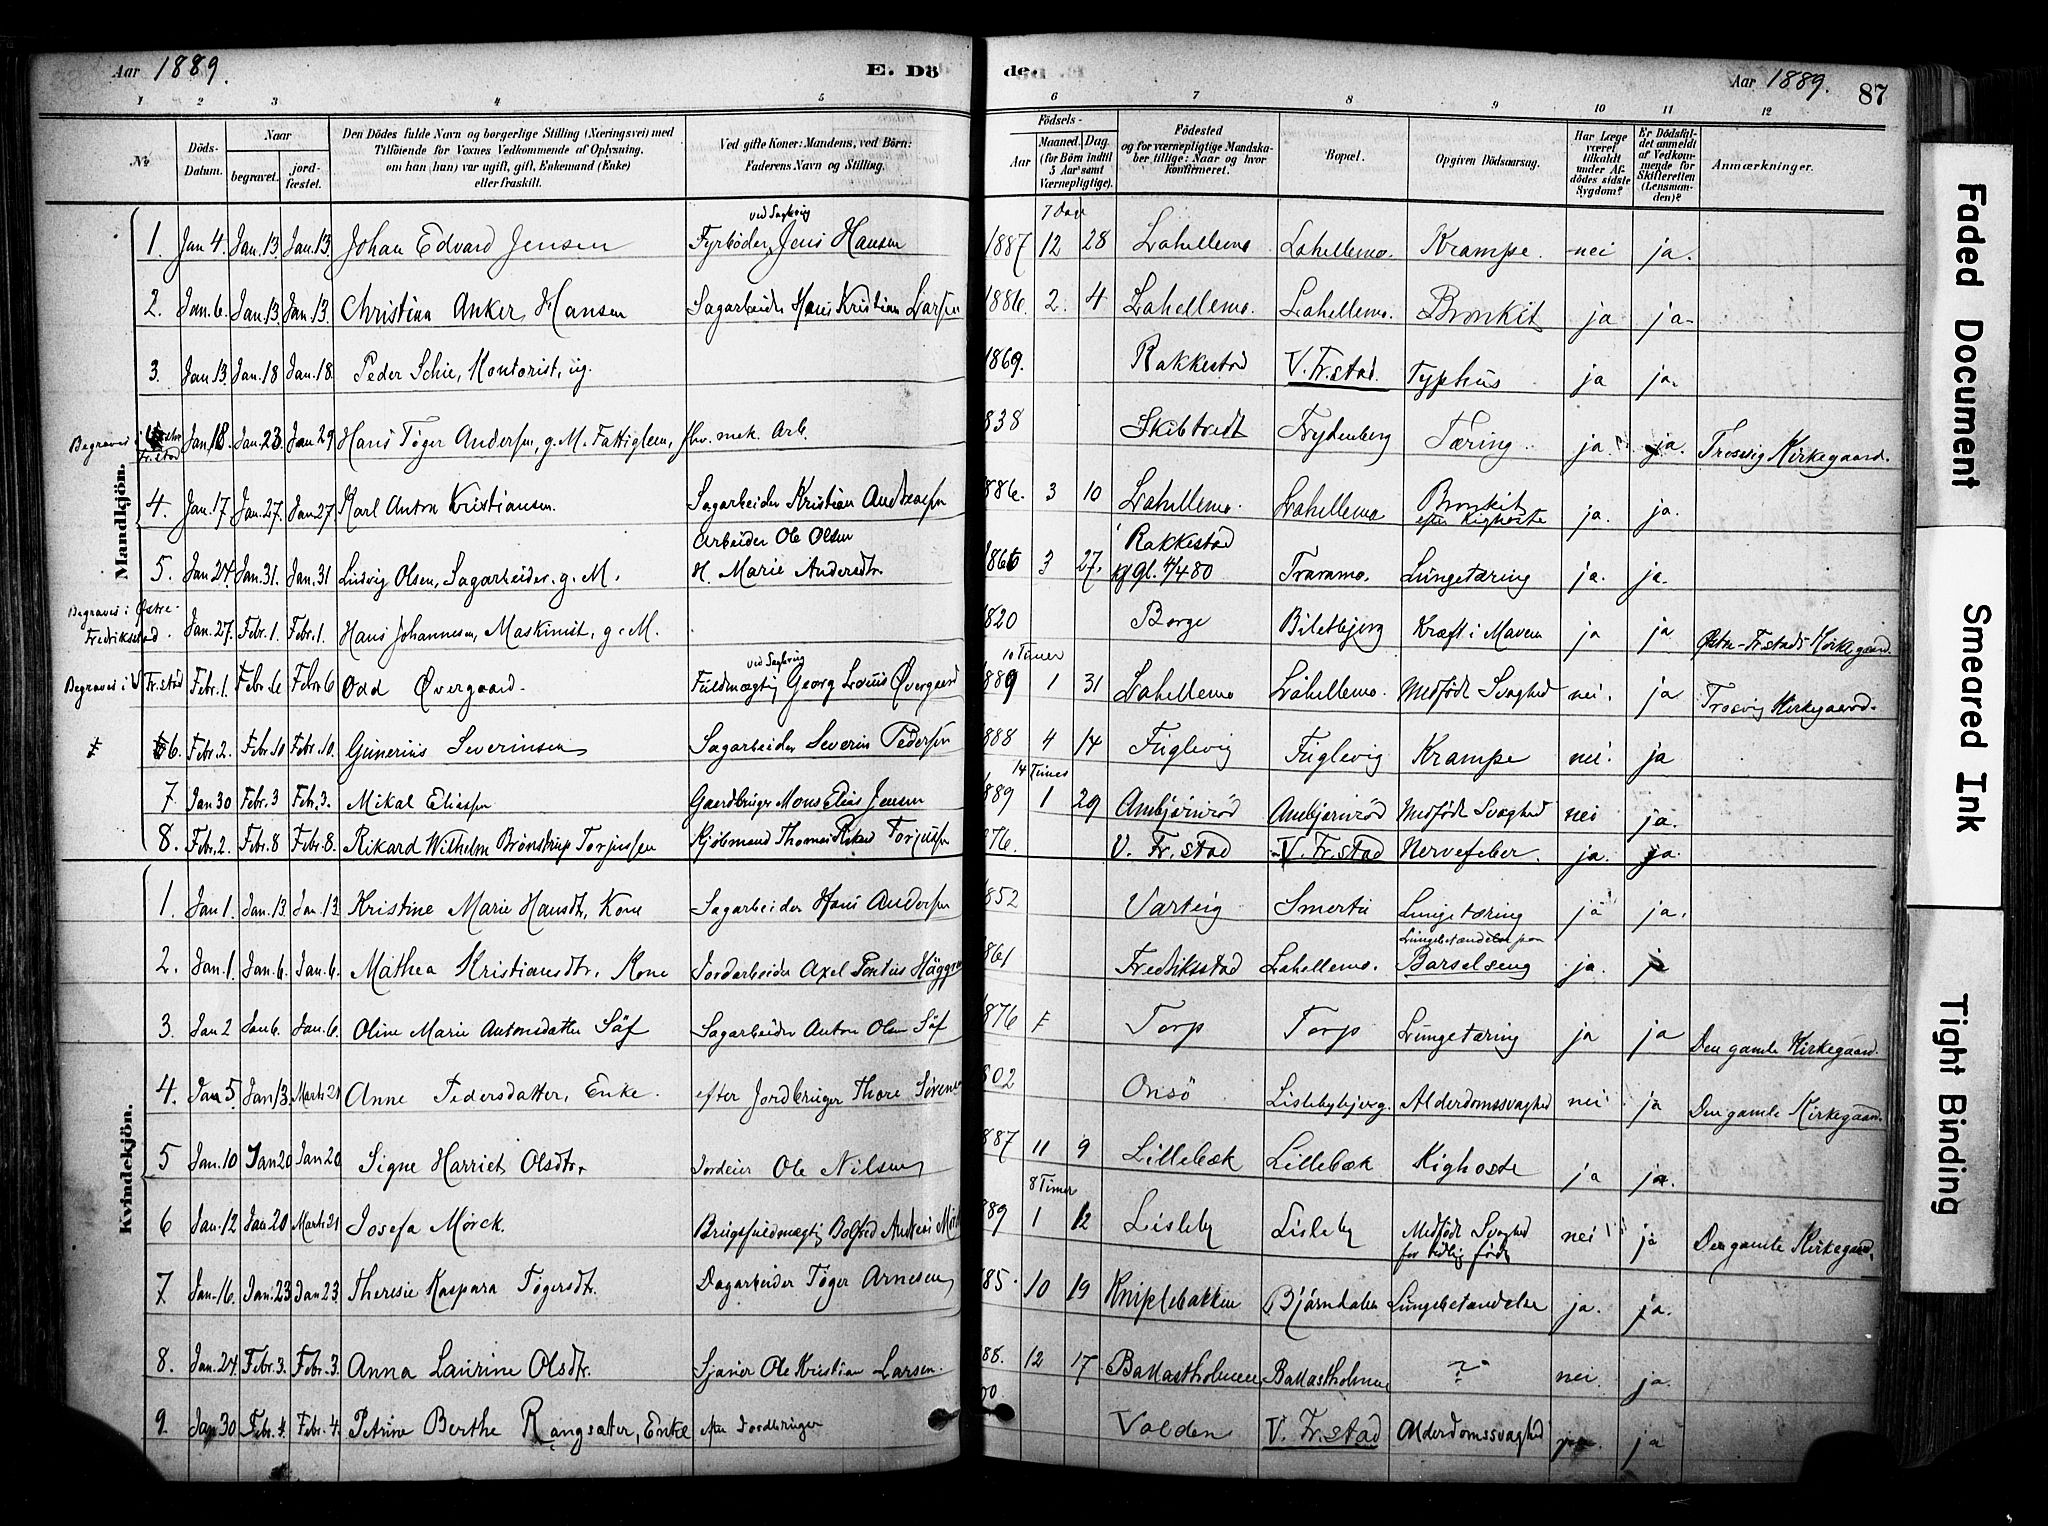 Aar 1889.
E. Dö
de.
Aar 1889.
87
1 2 3 4 5 6 7 8 9 10 11 12
No
Döds-Datum.
Naar
begravet.
jord-fæstet.
Den Dödes fulde Navn og borgerlige Stilling (Næringsvei) med
Tilföiende for Voxnes Vedkommende af Oplysning,
om han (hun) var ugift, gift, Enkemand (Enke)
eller fraskilt.
Ved gifte Koner: Mandens, ved Börn:
Faderens Navn og Stilling.
Födsels-
Aar
Maaned. Dag.
(for Börn indtil
5 Aar samt
Værnepligtige).
Födested
og for værnepligtige Mandska-
ber tillige: Naar og hvor
konfirmeret.
Bopæl.
Opgiven Dödsaarsag.
Har Læge
været
tilkaldt
under Af-
dödes sidste
Sygdom?
Er Dödsfal-
det anmeldt
af Vedkom-
mende for
Skifteretten
(Lensman-
den)?
Anmærkninger.
Mandkjön.
1. Jan 4. Jan. 13 Jan. 13. Johan Edvard Jensen Fyrbøder ved Sagbrug Jens Hansen 1887 12 28 7 Dage Lahellemo Lahellemo. Krampe. nei ja.
2. Jan. 6. Jan. 13. Jan. 13. Christian Anker Hansen Sagarbeider Hans Kristian Larsen 1886. 2. 4 Lahellemo. Lahellemo. Bronkit ja ja-
3. Jan 13. Jan. 18 Jan. 18. Peder Schie, Kontorist, ug. 1869. Rakkestad V. Fr.stad. Typhus ja ja.
Begraves i Fr.stad Jan. 18 Jan. 23. Jan 29 Hans Tøger Andersen, g. M. Fattiglem, fhv. mek. Arb. 838 Skibtvedt Frydenberg Tæring. ja. ja. Trosvig Kirkegaard.
4. Jan. 17 Jan. 27. Jan 27. Karl Anton Kristiansen. Sagarbeider Kristian Andreasen 886. 3 10 Lahellemo. Lahellemo Bronkit efter Kighoste ja. ja.
5. Jan 24. Jan. 31. Jan. 31 Ludvig Olsen, Sagarbeider. g. M. Arbeider Ole Olsen H. Marie Andersdtr. 3 27. Rakkestad Traramo. Lungetæring ja. ja.
Begraves i Østre-Fredriksstad. Jan. 27. Febr. 1. Febr. 1. Hans Johannesen, Maskinist, g. M. 820 Borge Biletbjerg Kræft i Maven ja ja Østre-Fr.stads Kirkegaard.
Begraves i V Fr.stad Febr. 1. Febr. 6 Febr 6 Odd Øvergaard. Fuldmægtig ved Sagbrug Georg Louis Øvergaard 889 1 31 10 Timer Lahellemo Lahellemo. Medfødt Svaghed nei. ja Trosvig Kirkegaard.
6. Febr. 2. Febr. 10 Febr. 10. Gunerius Severinsen Sagarbeider Severin Pedersen 888 4 14 Fuglevig Fuglevig Krampe nei. ja
7. Jan 30 Febr. 3 Febr. 3. Mikal Eliassen Gaardbruger Mons Elias Jensen 889 1 29 14 Timer Ambjørnrød Ambjørnrød Medfødt Svaghed nei ja.
8. Febr. 2. Febr. 8 Febr. 8. Rikard Wilhelm Brønstrup Torjussen Kjøbmand Thomas Rikard Torjussen 876. V. Fr.stad V. Fr.stad Nervefeber. ja. ja.
Kvindekjön.
1. Jan 1. Jan. 13. Jan. 13. Kristine Marie Hansdtr, Kone Sagarbeider Hans Andersen 1852 Varteig Smertu Lungetæring ja ja.
2. Jan. 1. Jan. 6. Jan. 6. Mathea Kristiansdtr. Kone Jordarbeider Axel Pontus 861 Fredriksstad Lahellemo. Lungebetændelse paa Barselseng ja.
3. Jan 2 Jan 6. Jan. 6. Oline Marie Antonsdatter Säf Sagarbeider Anton Olsen Säf 1876 Torp Torp Lungetæring ja ja Den gamle Kirkegaard.
4. Jan 5. Jan 13. Marts 21 Anne Pedersdatter, Enke. efter Jordbruger Thore Sørensen 802 Onsö Lislebybjerg. Alderdomssvaghed nei ja Den gamle Kirkegaard.
5 Jan. 10 Jan 20 Jan 20 Signe Harriet Olsdtr Jordeier Ole Nilsen 887 11 9 Lillebæk Lillebæk Kighoste ja ja.
6 Jan. 12 Jan 20 Marts 21 Josefa Mørck. Brugsfuldmægtig Andreas Mørck 889 1 12 8 Timer Lisleby Lisleby Medfødt Svaghed for tidlig født nei ja Den gamle Kirkegaard.
7. Jan. 16. Jan. 23 Jan 23 Theresie Kaspara Tøgersdtr. Dagarbeider Tøger Arnesen 85. 10 19 Kniplebakken Bjørndalen Lungebetændelse ja. ja.
8. Jan. 24 Febr. 3. Febr. 3 Anna Laurine Olsdtr. Sjauer Ole Kristian Larsen. 88. 12 17. Ballastholmen Ballastholmen ? nei. ja
9. Jan 30 Febr. 4. Febr. 4. Petrine Berthe Rangsæter, Enke efter Jordbruger Volden V. Fr.stad Alderdomssvaghed ja. ja
Faded Document
Smeared Ink
Tight Binding